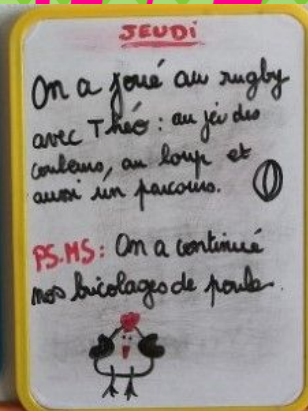 JEUDi
On a joué au rugby
avec Théo : au jeu des
couleurs, au loup et
aussi un parcours.
PS.MS : On a continué
nos bricolages de poule.